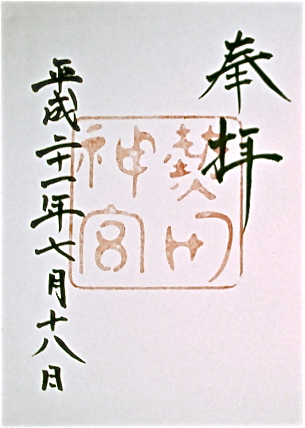 奉拝
熱田
神宮
平成二十一年七月十八日